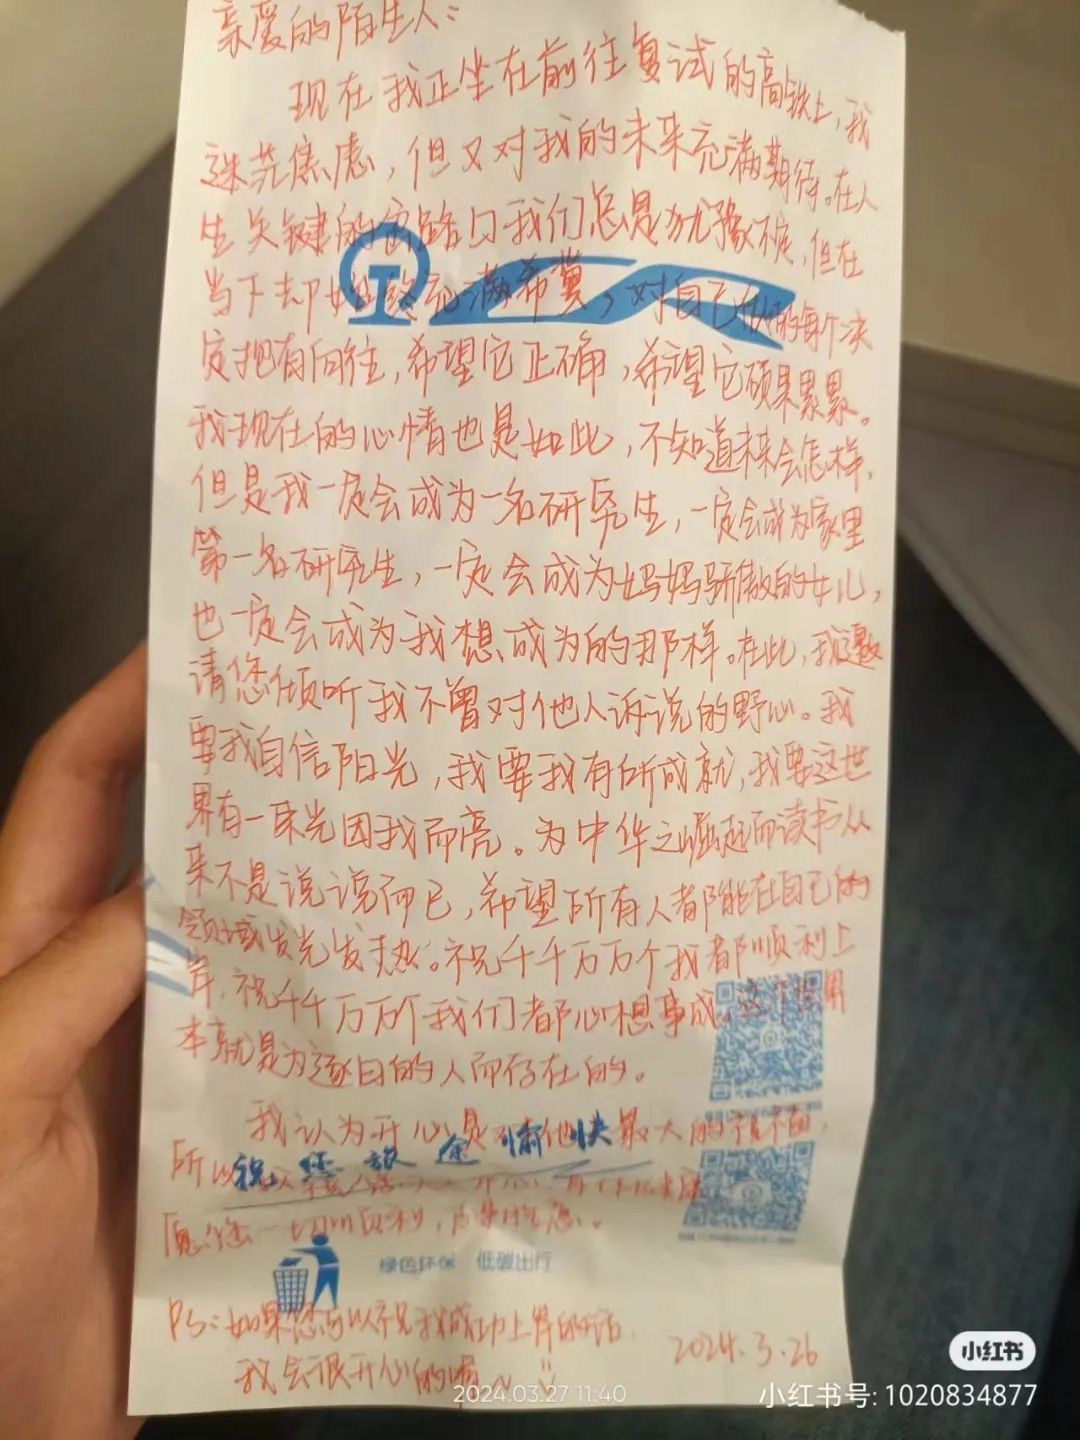 亲爱的陌生人:
现在我正坐在前往复试的高铁上,我
迷茫焦虑,但又对我的未来充满期待。在人
生关键的岔路口我们总是犹豫不定,但在
当下却始终充满希冀,对自己做的每个决
定抱有向往,希望它正确,希望它硕果累累。
我现在的心情也是如此,不知道未来会怎样,
但是我一定会成为一名研究生,一定会成为家里
第一名研究生,一定会成为妈妈骄傲的女儿,
也一定会成为我想成为的那样。在此,我邀
请您倾听我不曾对他人诉说的野心。我
要我自信阳光,我要我有所成就,我要这世
界有一束光因我而亮。为中华之崛起而读书从
来不是说说而已,希望所有人都能在自己的
领域发光发热。祝千千万万个我都顺利上
岸,祝千千万万个我们都心想事成,这个世界
本就是为逐日的人而存在的。
我认为开心是 最大的
所以
祝您旅途愉快
愿您一切顺利,
绿色环保 低碳出行
PS:如果您可以祝我成功上岸的话,
我会很开心的喔~
2024.3.26
2024.03.27 11:40
小红书
小红书号: 1020834877